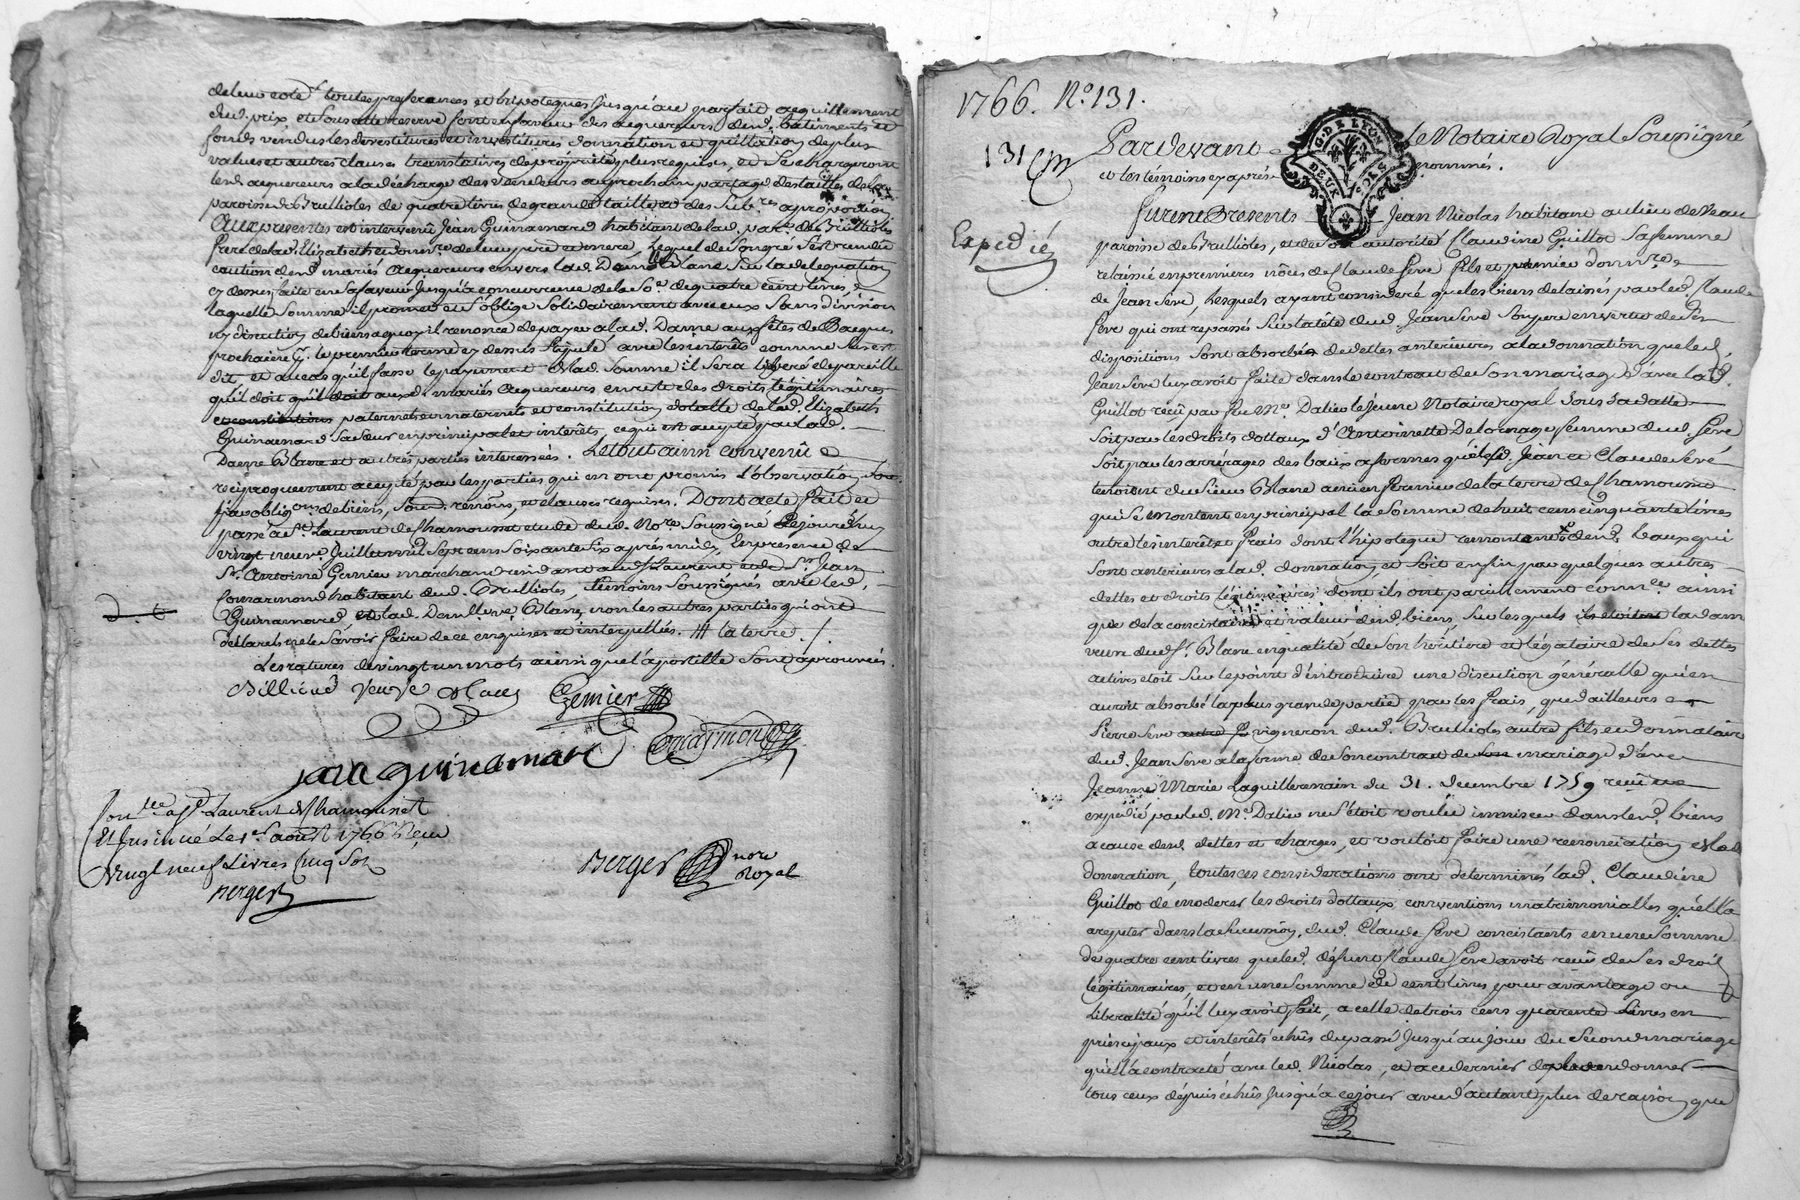 de leur coté toutes preferances et hipoteques jusqu'au parfait acquittement
dud. prix, et sous cette reserve font en faveur des acquereurs dud. batiments et
fonds vendus les devestitures et investitures donnation et quittation de plus
values et autres clauses translatives de proprietés plus requises, et se chargeront
led. acquereurs a la décharge des vendeurs au prochain partage des tailles de la
paroisse de Brullioles de quatre livres de grande taille
Aux presentes est intervenû Jean Guinamard habitant de lad. parr. de Brullioles
frere de lad. Elizabeth et donnre. de leur pere et mere, lequel de son gré s'est rendu
caution desd. mariés acquereurs envers lad. Dame Blanc sur la delegation
cy dessus faite en sa faveur jusqu'a concurrence de la Se. de quatre cent livres,
laquelle somme il promet et s'oblige solidairement avec eux sans division
ny discution de biens a quoy il renonce de payer a lad. Dame aux fêtes de Pacques
prochaine le premier terme cy dessus stipulé avec les interêts comme sus est
dit et au cas qu'il fasse le payement de lad. somme il sera liberé de pareille
qu'il doit auxd. mariés acquereurs en reste des droits légitimaires
et constitutions paternels et maternels et constitution dotalle de lad. Elizabeth
Guinamard sa sœur en principal et interêts, ce qui est accepté par lad.
Dame Blanc et autres parties interessées. Le tout ainsi convenû et
reciproquement accepté par les parties qui en ont promis l'observation sous
obligons. de biens, soum. renons. et clauses requises. Dont acte fait et
passé a St. Laurent de Chamousset etude dud. Nore. soussigné cejourd'huy
vingt neuf Juillet mil sept cens soixante six après midy, en presence de
Sr. Antoine Gemier marchand residant aud. St Laurent et de Sr. Jean
Comarmond habitant dud. Brullioles, temoins soussignés avec led.
Guinamard, et lad. Demlle. veuve Blanc, non les autres parties qui ont
declaré ne le savoir faire de ce enquises et interpellées. la terre ./.
Les ratures de vingt un mots ainsi que l'apostille sont aprouvées.
veuve Blanc Gemier
Comarmond
jean guinamar
Conlle. a St Laurent de Chamousset
Et Insinué le 1er aoust 1766 Reçu
vingt neuf Livres cinq sols
Berger
Berger nore
Royal
1766. No. 131.
131
Expedié
G. DE LYON
DEUX SOLS
Par devant le Notaire Royal Soussigné
et les témoins cy après nommés.
Furent Presents Jean Nicolas habitant au lieu de Veau
paroisse de Brullioles, et de son autorité Claudine Guillot sa femme
relaissée en premieres nôces de Claude Seve fils et premier donnre.
de Jean Seve, lesquels ayant consideré que les biens delaissés par led. Claude
Seve qui ont repassés sur la tête dud. Jean Seve son pere en vertu de ses
dispositions sont absorbés de dettes anterieures a la donnation que led.
Jean Seve luy avoit faite dans le contrat de son mariage d'avec lad.
Guillot reçû par feu Me. Dalieu le jeune Notaire royal sous sa datte
soit par les droits dottaux d'Antoinette Delorage femme dud. Seve
soit par les arrérages des baux a fermes que led. Jean et Claude Sevé
tenoient du Sieur Blanc ancien fermier de la terre de Chamousset
qui se montent en principal la somme de huit cens cinquante livres
outre les interêts et frais dont l'hipoteque remonte aud. baux qui
sont anterieurs a lad. donnation, et soit enfin par quelques autres
dettes et droits légitimaires dont ils ont pareillement connce. ainsi
que de la concistance et valeur desd. biens, sur lesquels ils étoient lad. dam
veuve dud. Sr. Blanc en qualité de son héritiere et légataire de ses dettes
actives étoit sur le point d'introduire une discution générale qui en
auroit absorbé la plus grande partie par les frais, que d'ailleurs
Pierre Seve autre vigneron dud. Brullioles autre fils et donnataire
dud. Jean Seve a la forme de son contrat de mariage d'avec
Jeanne Marie Laguillermain du 31. decembre 1759 recû et
expedié par led. Me Dalieu ne s'étoit voulû immiscer dans led. biens
a cause desd. dettes et charges, et vouloit faire une renonciation de lad.
donnation, toutes ces considerations ont determinés lad. Claudine
Guillot de moderer les droits dottaux conventions matrimonialles qu'ell'a
a repeter dans la succession dud. Claude Seve concistants en une somme
de quatre cent livres que led. défunt Claude Seve avoit recû de ses droits
légitimaires, et en une somme de cent livres pour avantage ou
liberalité qu'il luy avoit fait, a celle de trois cens quarente Livres en
principaux et interêts échûs du passé jusqu'au jour du second mariage
qu'ell'a contracté avec led. Nicolas, et ce dernier de donner
tous ceux dépuis échûs jusqu'a ce jour avec d'autant plus de raison que